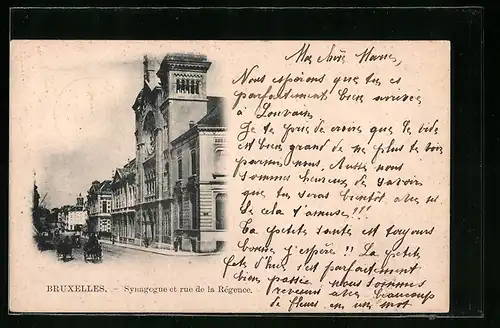 Ma chère Marie,
Nous espérons que tu es
parfaitement bien arrivée
à Louvain
Je te prie de croire que le vide
est bien grand de ne plus te voir
parmi nous. Aussi nous
sommes heureux de savoir
que tu seras bientôt avec
Si cela t'amuse!!!
Ta petite santé est toujours
bonne j'espère!! La petite
fête d'hier s'est parfaitement
bien passée. nous sommes
revenus avec beaucoup
de fleurs en un mot
BRUXELLES. - Synagogue et rue de la Régence.